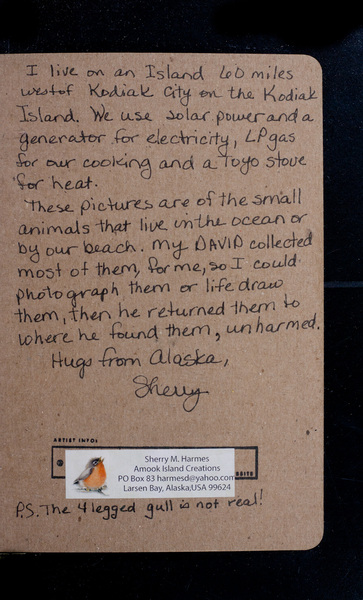 I live on an Island 60 miles
west of Kodiak City on the Kodiak
Island. We use solar power and a
generator for electricity, LP gas
for our cooking and a Toyo stove
for heat.
These pictures are of the small
animals that live in the ocean or
by our beach. My DAVID collected
most of them, for me, so I could
photograph them or life draw
them, then he returned them to
where he found them, unharmed.
Hugs from Alaska,
Sherry
ARTIST INFO:
Sherry M. Harmes
Amook Island Creations
PO Box 83 harmesd@yahoo.com
Larsen Bay, Alaska,USA 99624
BSITE
P.S. The 4 legged gull is not real!